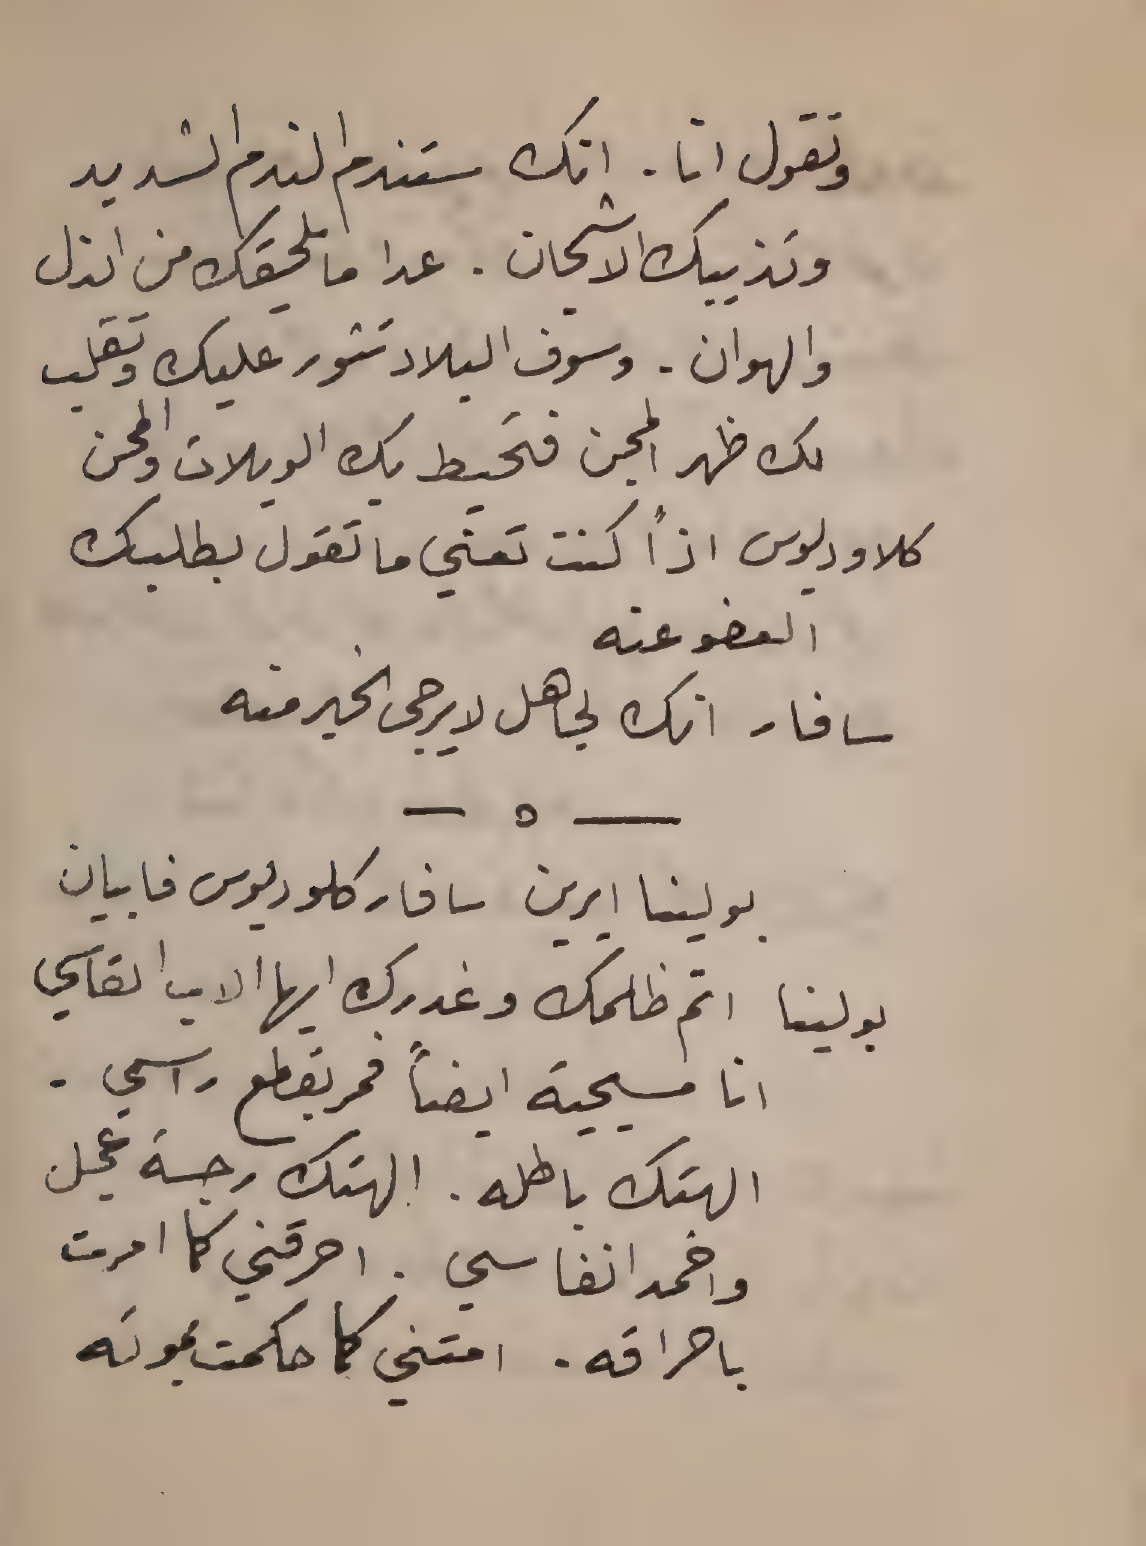 وتقول انا . انك ستندم الندم الشديد
وتذيبك الاشجان . عدا ما يلحقك من الذل
والهوان . وسوف البلاد تثور عليك وتقلب
لك ظهر المجن فتحيط بك الويلات والمحن
كلاوديوس اذاً كنت تعني ما تقول بطلبك
العفو عنه
سافار انك لجاهل لا يرجى الخير منه
— ٥ —
بولينا ايرين سافار كلوديوس فابيان
بولينا اتم ظلمك وغدرك ايها الاب القاسي
انا مسيحية ايضاً فمر بقطع راسي .
الهتك باطله . الهتك رجسة عجل
واخمد انفاسي . احرقني كما امرت
باحراقه . امتني كما حكمت بموته